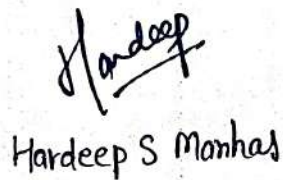 Hardeep
Hardeep S Manhas